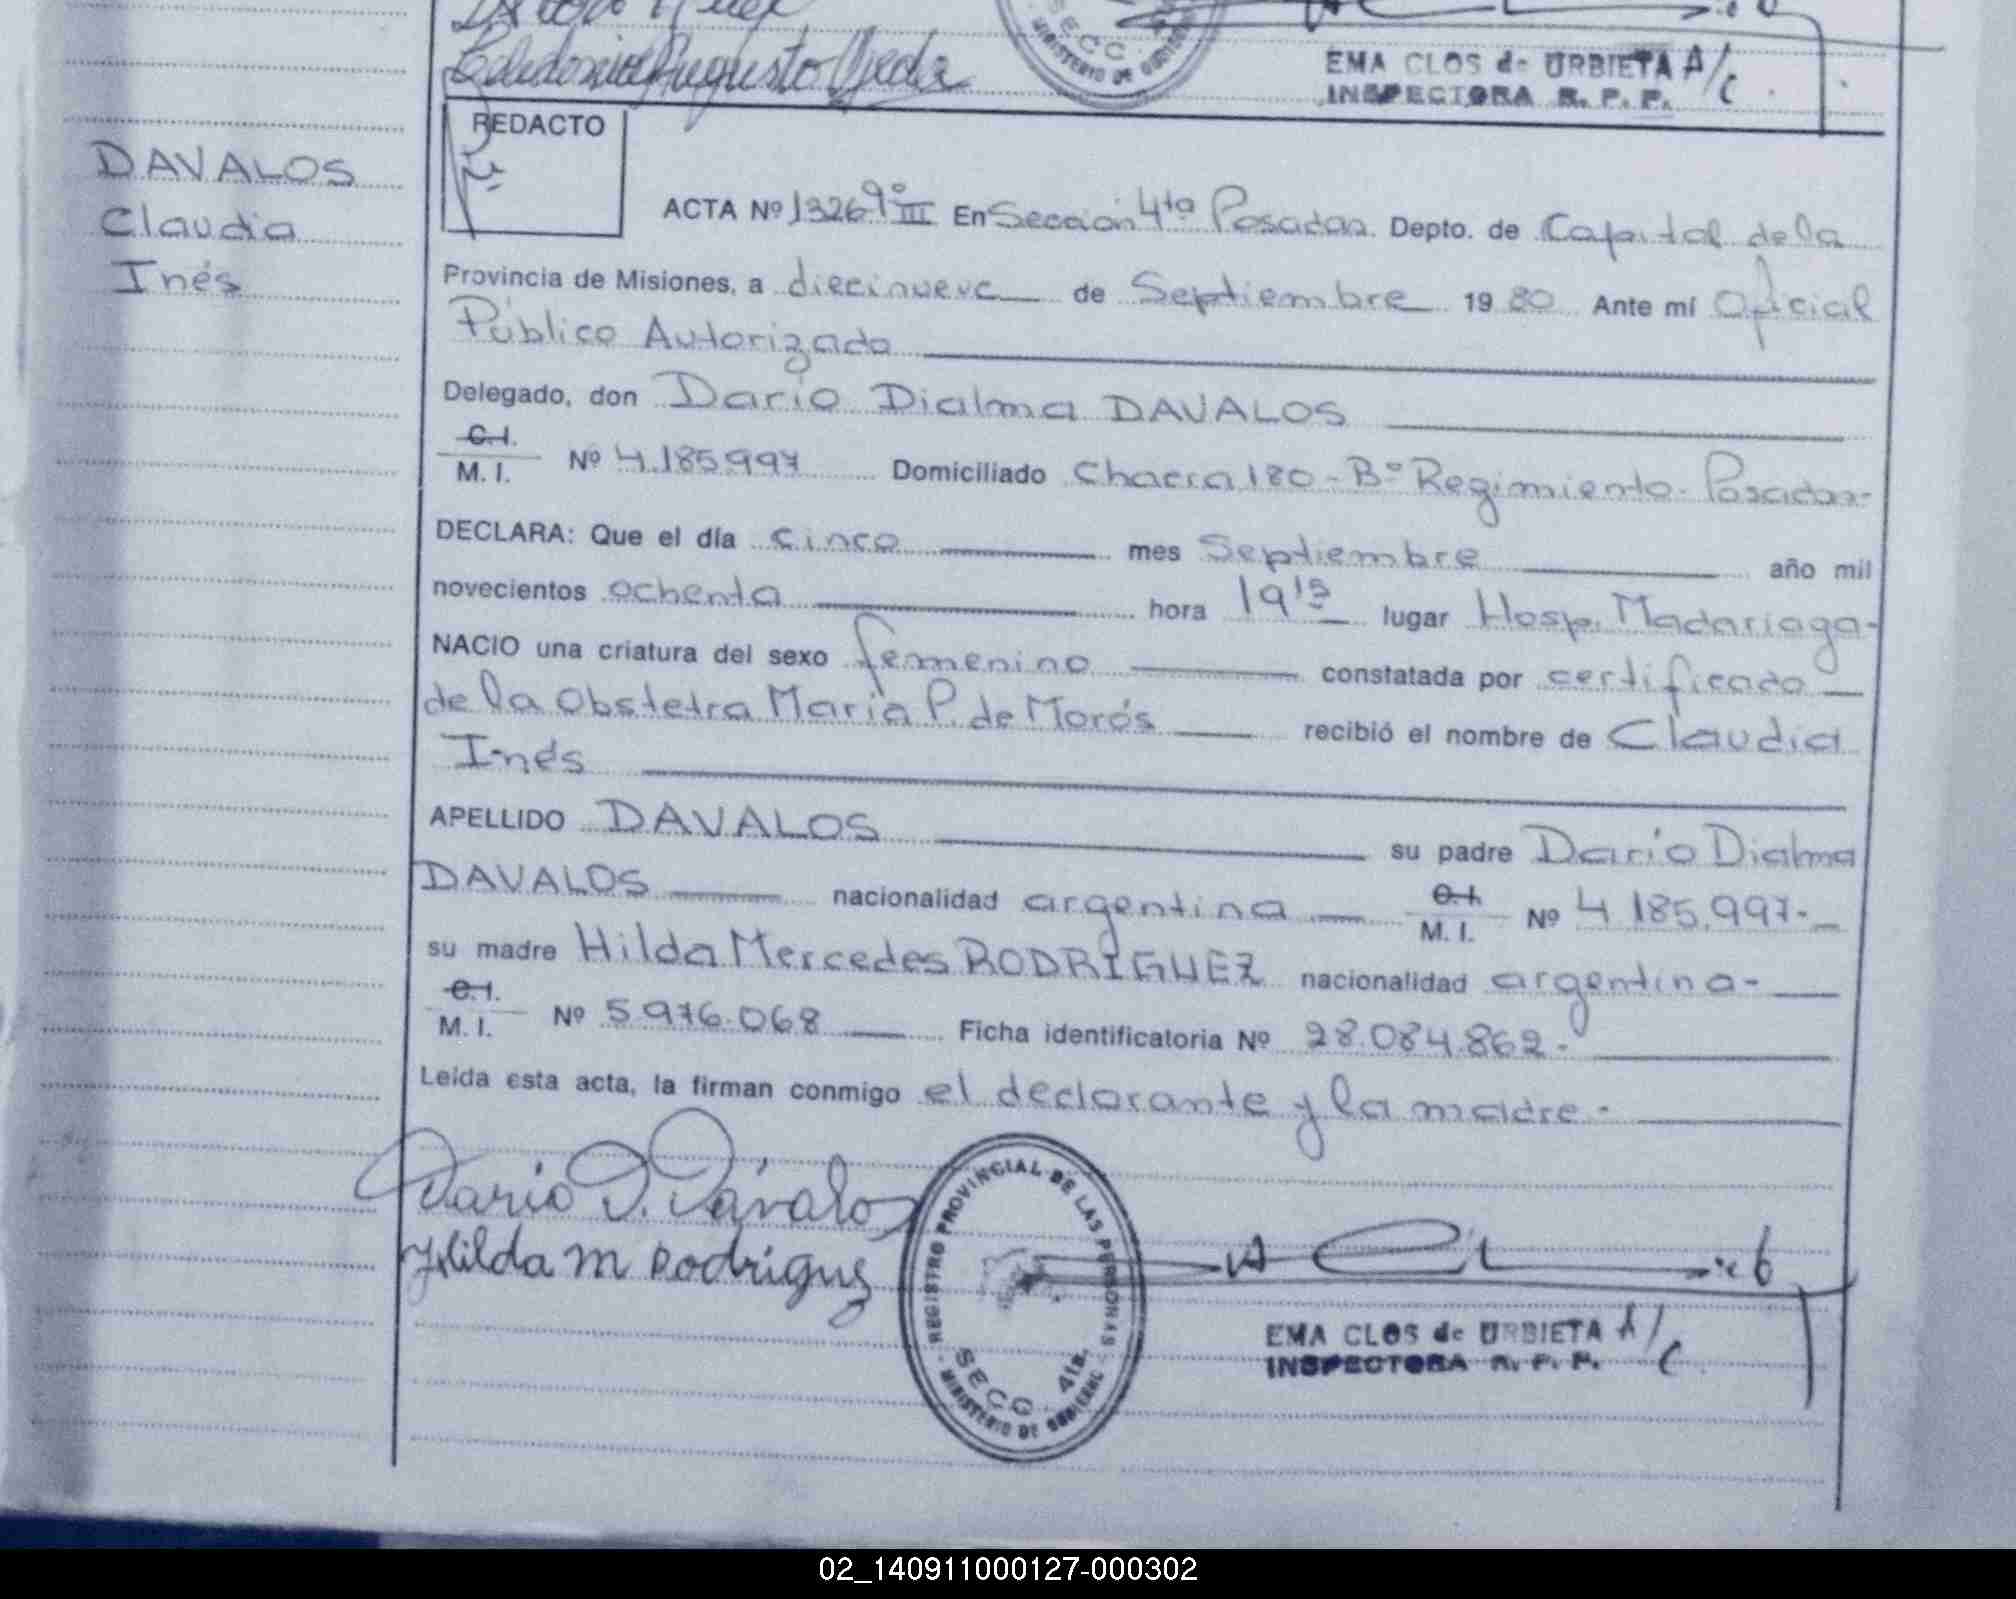 Celedonio Augusto Ojeda
EMA CLOS de URBIETA A/C
INSPECTORA R. P. P.
REDACTO
DAVALOS
Claudia
Inés
ACTA Nº 1326 9º III En Sección 4ta Posadas Depto. de Capital de la
Provincia de Misiones, a diecinueve de Septiembre 19 80 Ante mí Oficial
Público Autorizado
Delegado, don Dario Dialma DAVALOS
C.I.
M. I. Nº 4.185.997 Domiciliado Chacra 180 - Bº Regimiento - Posadas-
DECLARA: Que el día cinco mes Septiembre año mil
novecientos ochenta hora 19 15 lugar Hosp. Madariaga-
NACIO una criatura del sexo femenino constatada por certificado
de la Obstetra Maria P. de Morós recibió el nombre de Claudia
Inés
APELLIDO DAVALOS su padre Dario Dialma
DAVALOS nacionalidad argentina C.I. M. I. Nº 4.185.997-
su madre Hilda Mercedes RODRIGUEZ nacionalidad argentina-
C.I.
M. I. Nº 5.976.068 Ficha identificatoria Nº 28.084.862-
Leída esta acta, la firman conmigo el declarante y la madre-
Dario D. Dávalos
Hilda M Rodriguez
REGISTRO PROVINCIAL DE LAS PERSONAS
SECC. 4ta.
MINISTERIO DE GOBIERNO
EMA CLOS de URBIETA A/C
INSPECTORA R. P. P.
02_140911000127-000302